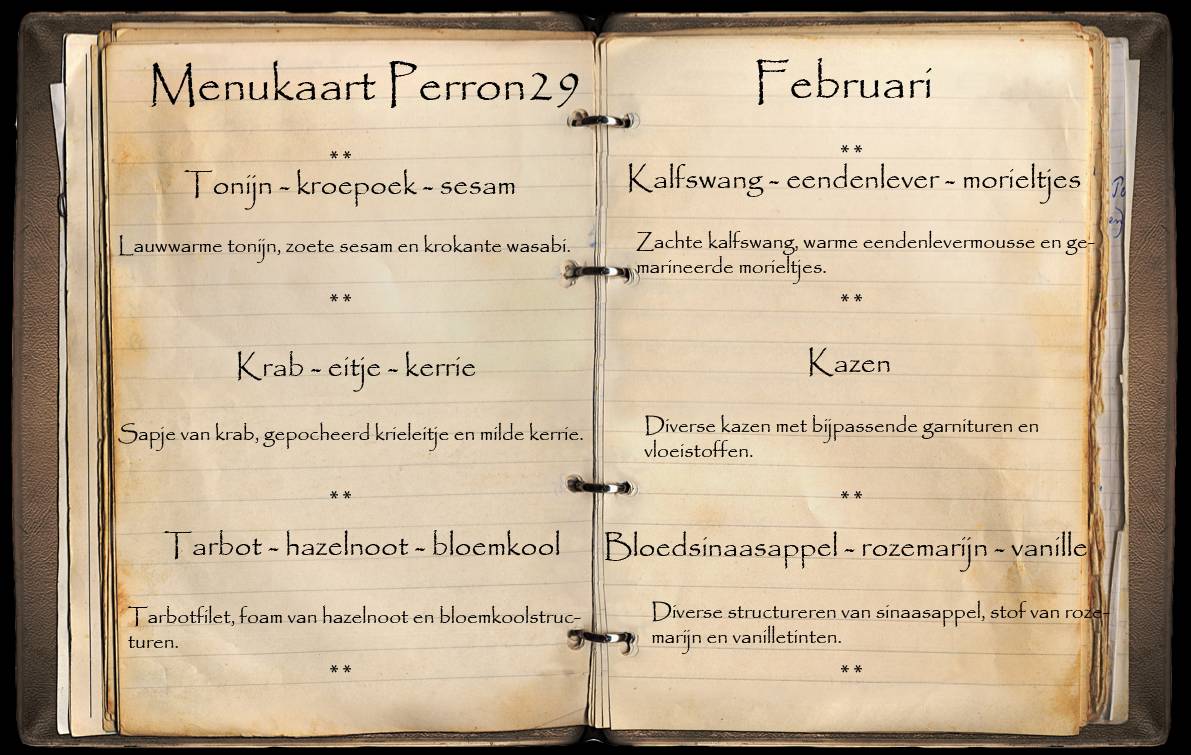 Menukaart Perron29
**
Tonijn ~ kroepoek ~ sesam
Lauwwarme tonijn, zoete sesam en krokante wasabi.
**
Krab ~ eitje ~ kerrie
Sapje van krab, gepocheerd krieleitje en milde kerrie.
**
Tarbot ~ hazelnoot ~ bloemkool
Tarbotfilet, foam van hazelnoot en bloemkoolstruc-
turen.
**
Februari
**
Kalfswang ~ eendenlever ~ morieltjes
Zachte kalfswang, warme eendenlevermousse en ge-
marineerde morieltjes.
**
Kazen
Diverse kazen met bijpassende garnituren en
vloeistoffen.
**
Bloedsinaasappel ~ rozemarijn ~ vanille
Diverse structureren van sinaasappel, stof van roze-
marijn en vanilletinten.
**